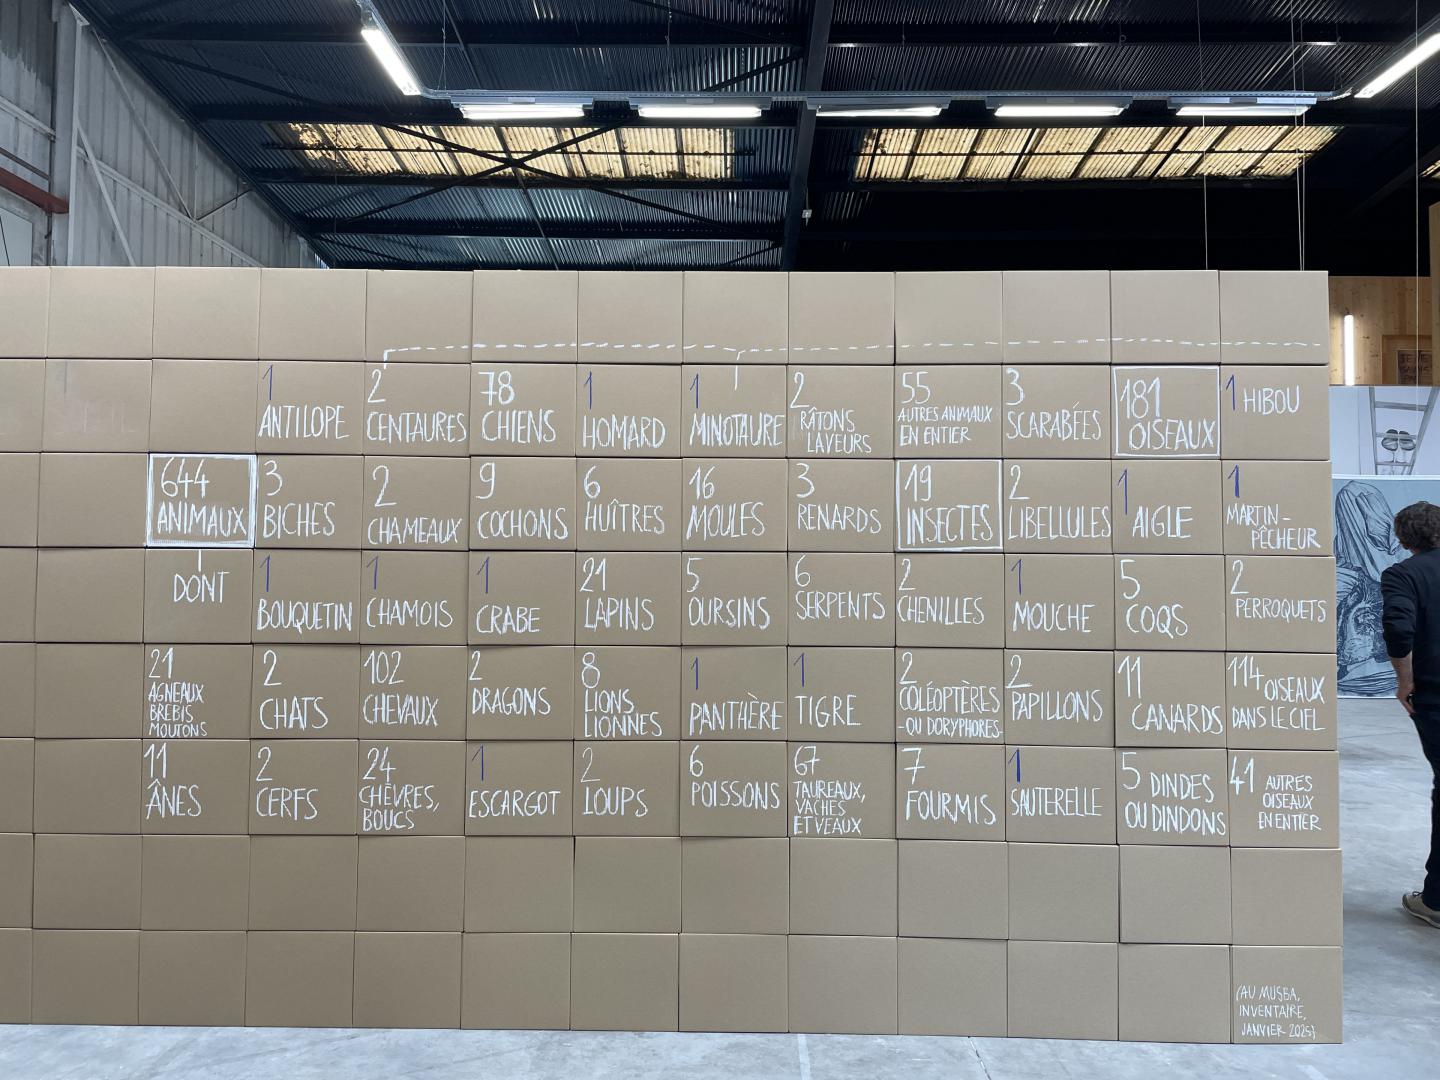 644
ANIMAUX
DONT
21
AGNEAUX
BREBIS
MOUTONS
11
ÂNES
1
ANTILOPE
3
BICHES
1
BOUQUETIN
2
CHATS
2
CERFS
2
CENTAURES
2
CHAMEAUX
1
CHAMOIS
102
CHEVAUX
24
CHÈVRES,
BOUCS
78
CHIENS
9
COCHONS
1
CRABE
2
DRAGONS
1
ESCARGOT
1
HOMARD
6
HUÎTRES
21
LAPINS
8
LIONS
LIONNES
2
LOUPS
1
MINOTAURE
16
MOULES
5
OURSINS
1
PANTHÈRE
6
POISSONS
2
RÂTONS
LAVEURS
3
RENARDS
6
SERPENTS
1
TIGRE
67
TAUREAUX,
VACHES
ET VEAUX
55
AUTRES ANIMAUX
EN ENTIER
19
INSECTES
2
CHENILLES
2
COLÉOPTÈRES
-OU DORYPHORES-
7
FOURMIS
3
SCARABÉES
2
LIBELLULES
1
MOUCHE
2
PAPILLONS
1
SAUTERELLE
181
OISEAUX
1
AIGLE
5
COQS
11
CANARDS
5 DINDES
OU DINDONS
1 HIBOU
1
MARTIN-
PÊCHEUR
2
PERROQUETS
114 OISEAUX
DANS LE CIEL
41 AUTRES
OISEAUX
EN ENTIER
(AU MUSBA,
INVENTAIRE,
JANVIER 2025)